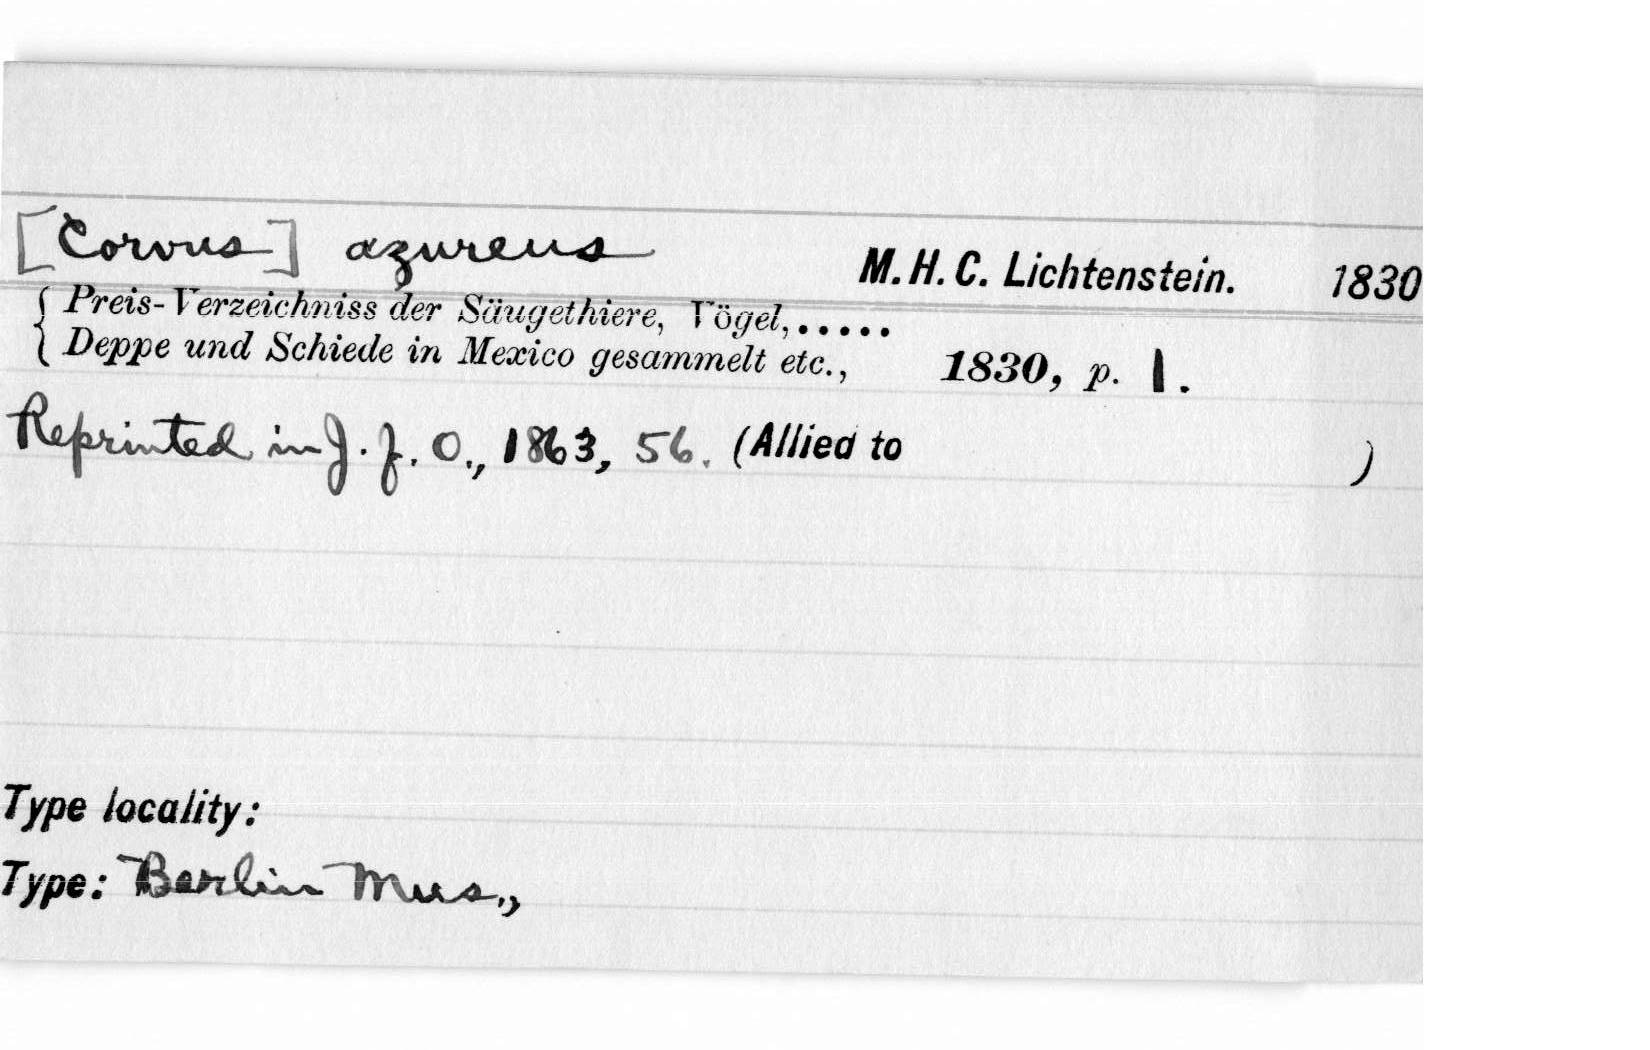 [Corvus] azureus M. H. C. Lichtenstein. 1830
{ Preis-Verzeichniss der Säugethiere, Vögel, .....
{ Deppe und Schiede in Mexico gesammelt etc., 1830, p. 1.
Reprinted in J. f. O., 1863, 56. (Allied to )
Type locality:
Type: Berlin Mus.,